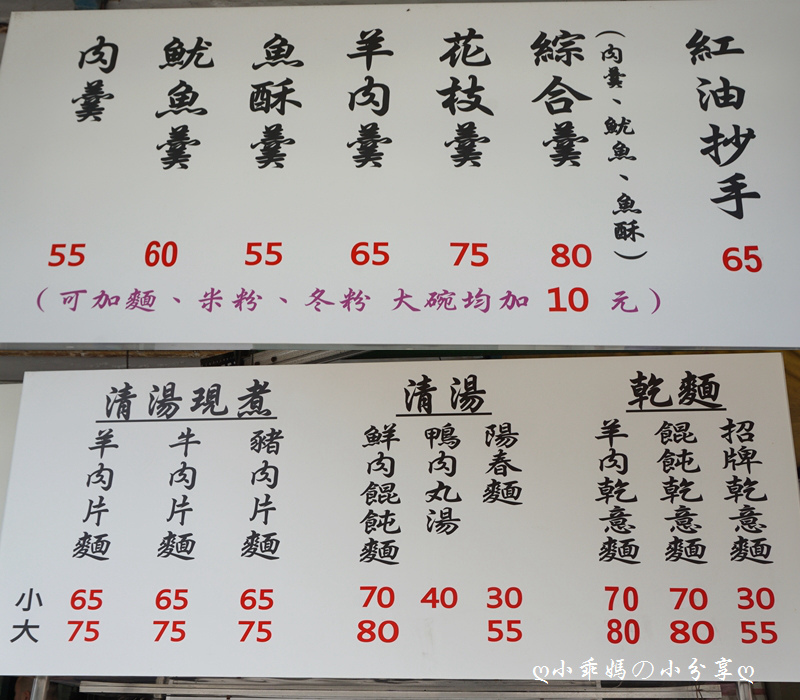 紅油抄手 65
綜合羹 80
(肉羹、魷魚、魚酥)
花枝羹 75
羊肉羹 65
魚酥羹 55
魷魚羹 60
肉羹 55
(可加麵、米粉、冬粉 大碗均加 10 元)
乾麵
招牌乾意麵 30 55
餛飩乾意麵 70 80
羊肉乾意麵 70 80
清湯
陽春麵 30 55
鴨肉丸湯 40
鮮肉餛飩麵 70 80
清湯現煮
豬肉片麵 65 75
牛肉片麵 65 75
羊肉片麵 65 75
小
大
ღ小乖媽の小分享ღ